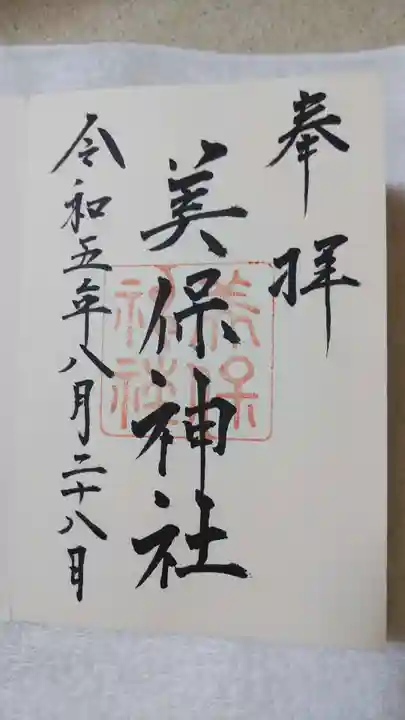 奉拝
美保神社
美保神社
令和五年八月二十八日